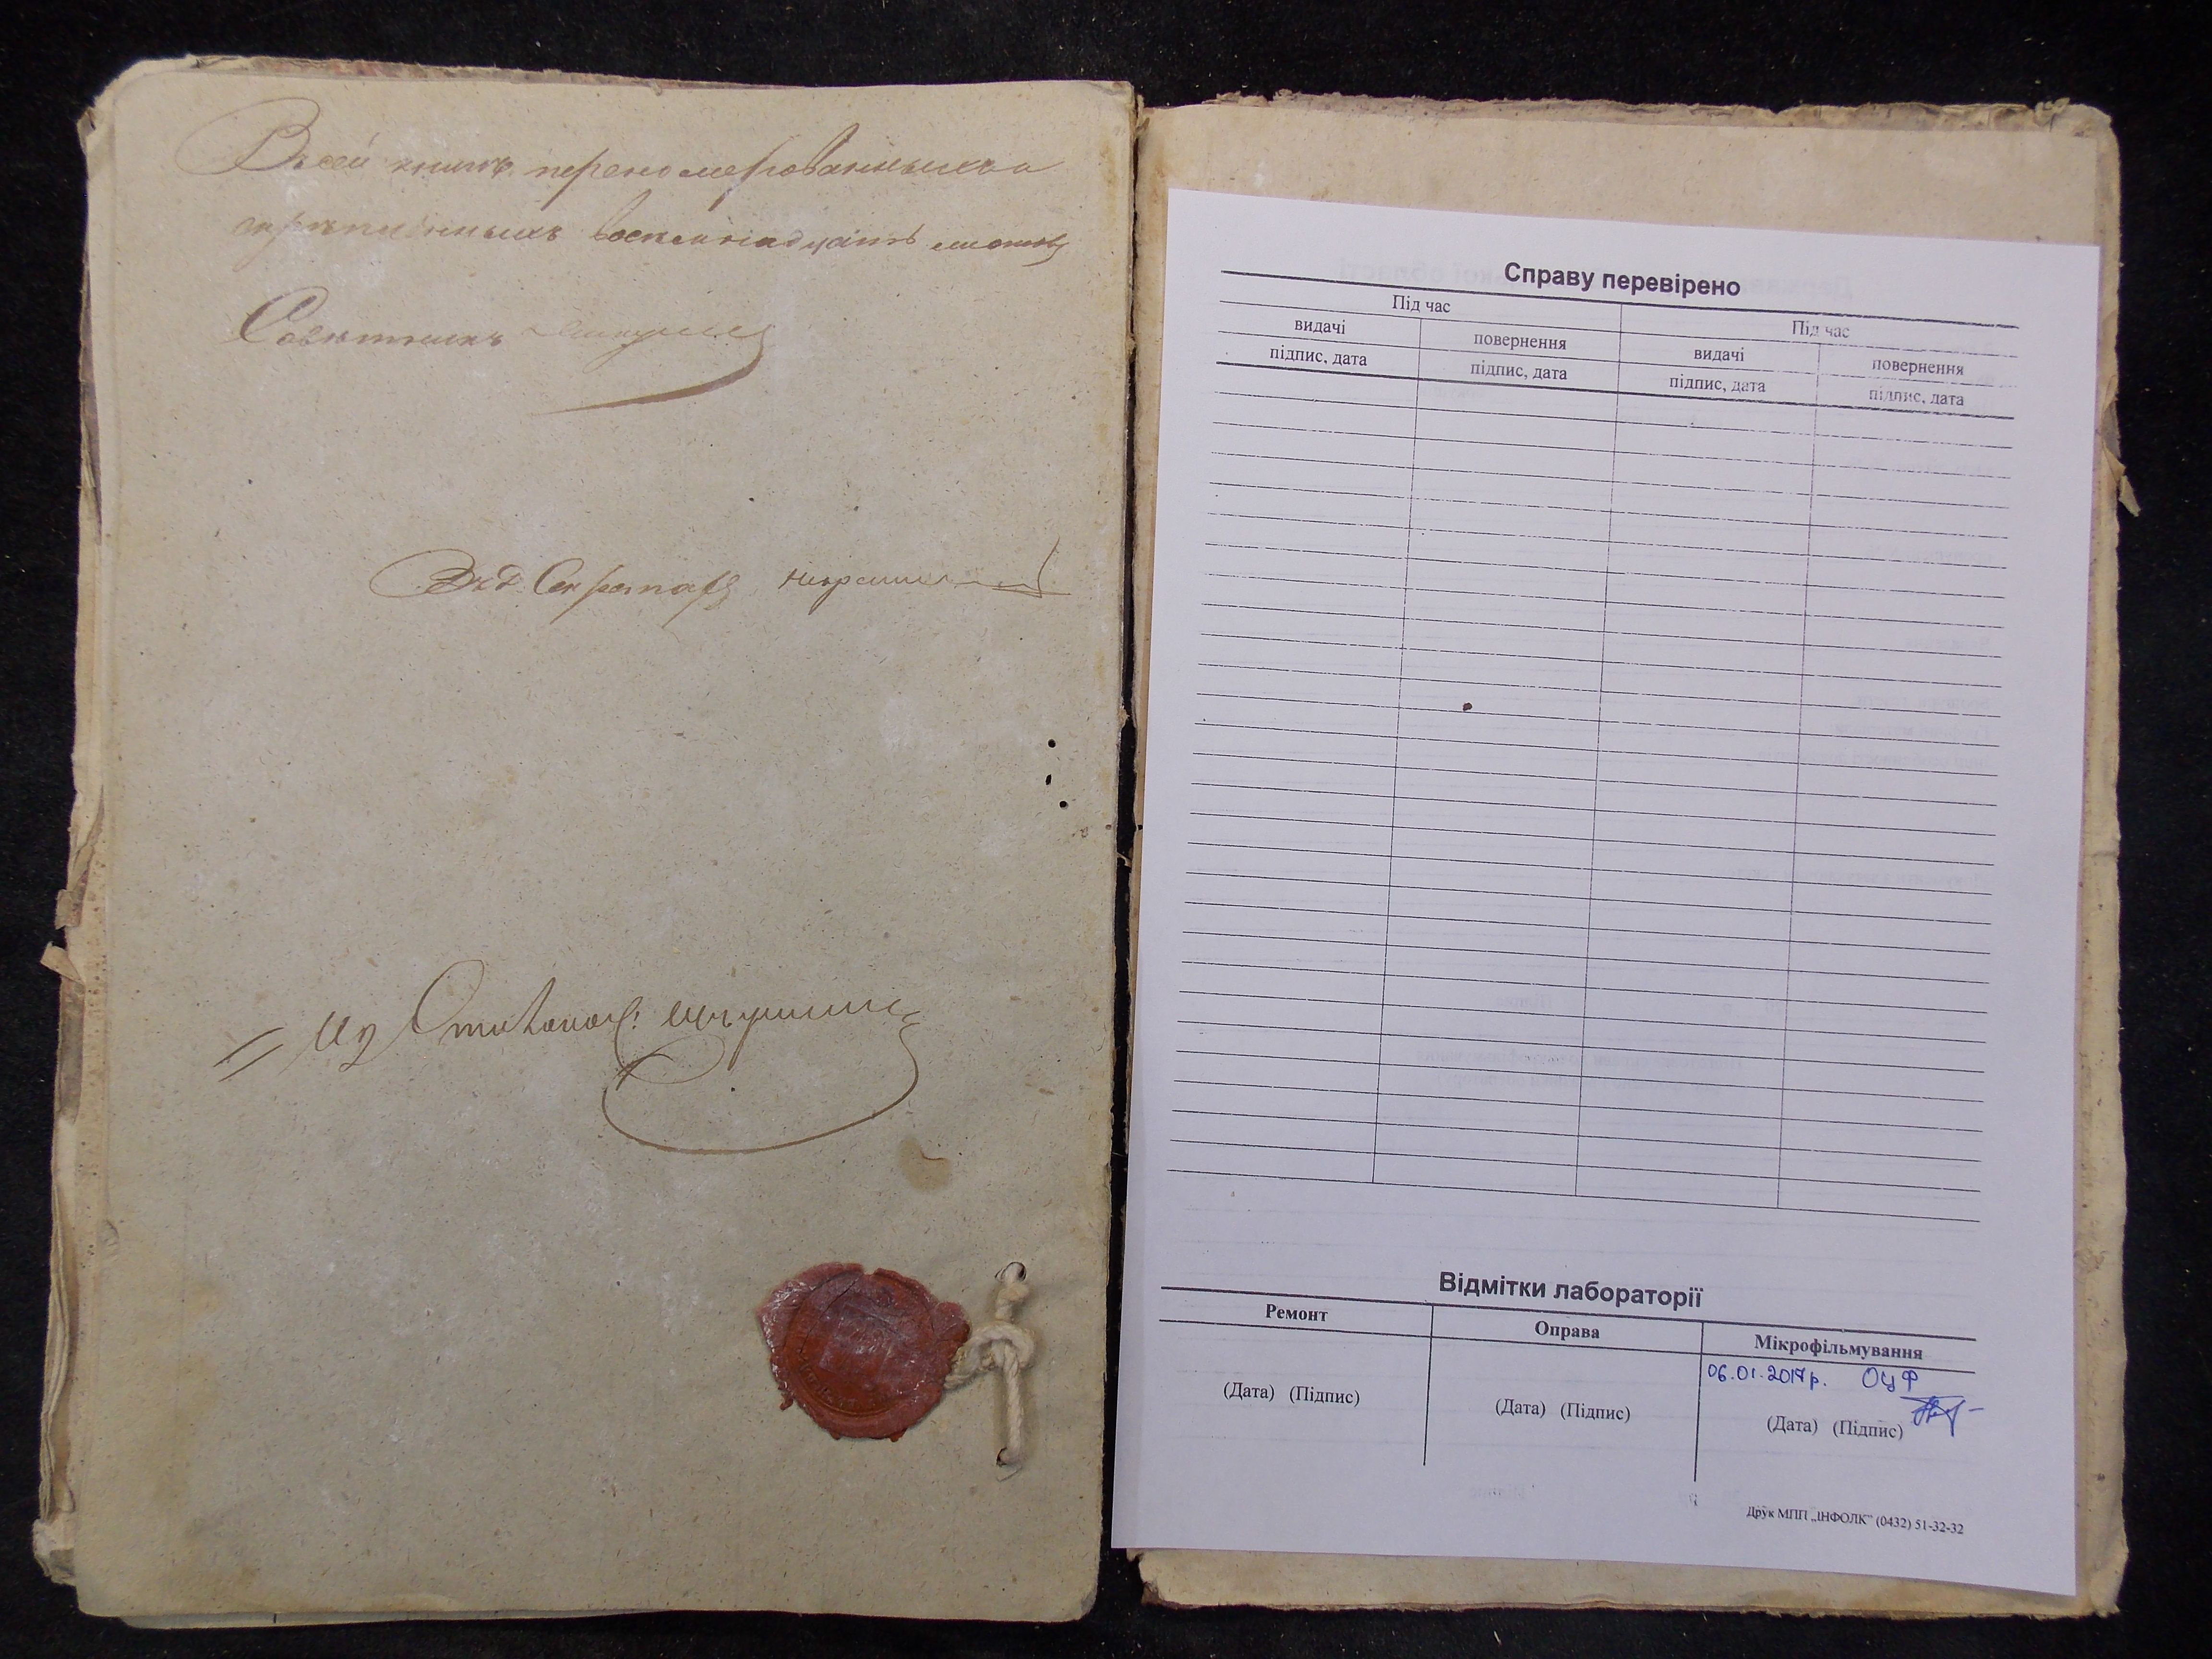 Въ сей книгѣ переномерованныхъ и
скрепленныхъ восемнадцать листовъ
Советникъ
Секретаря
Справу перевірено
Під час
Під час
видачі
повернення
видачі
повернення
підпис, дата
підпис, дата
підпис, дата
підпис, дата
Відмітки лабораторії
Ремонт
Оправа
Мікрофільмування
06.01.2017р. ОЦФ
(Дата) (Підпис)
(Дата) (Підпис)
(Дата) (Підпис)
Друк МПП „ІНФОЛК" (0432) 51-32-32